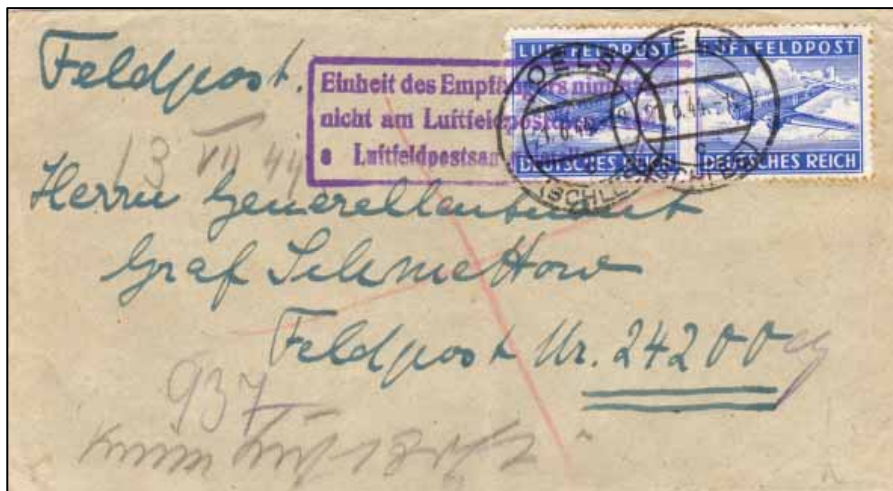 Feldpost.
Einheit des Empfängers nimmt
nicht am Luftfeldpost
a Luftfeldpostsam
LUFTFELDPOST
DEUTSCHES REICH
LUFTFELDPOST
DEUTSCHES REICH
OELS
(SCHLES)
OELS
(SCHLES)
13 VII 44
Herrn Generalleutnant
Graf Schmettow
Feldpost Nr. 24200
937